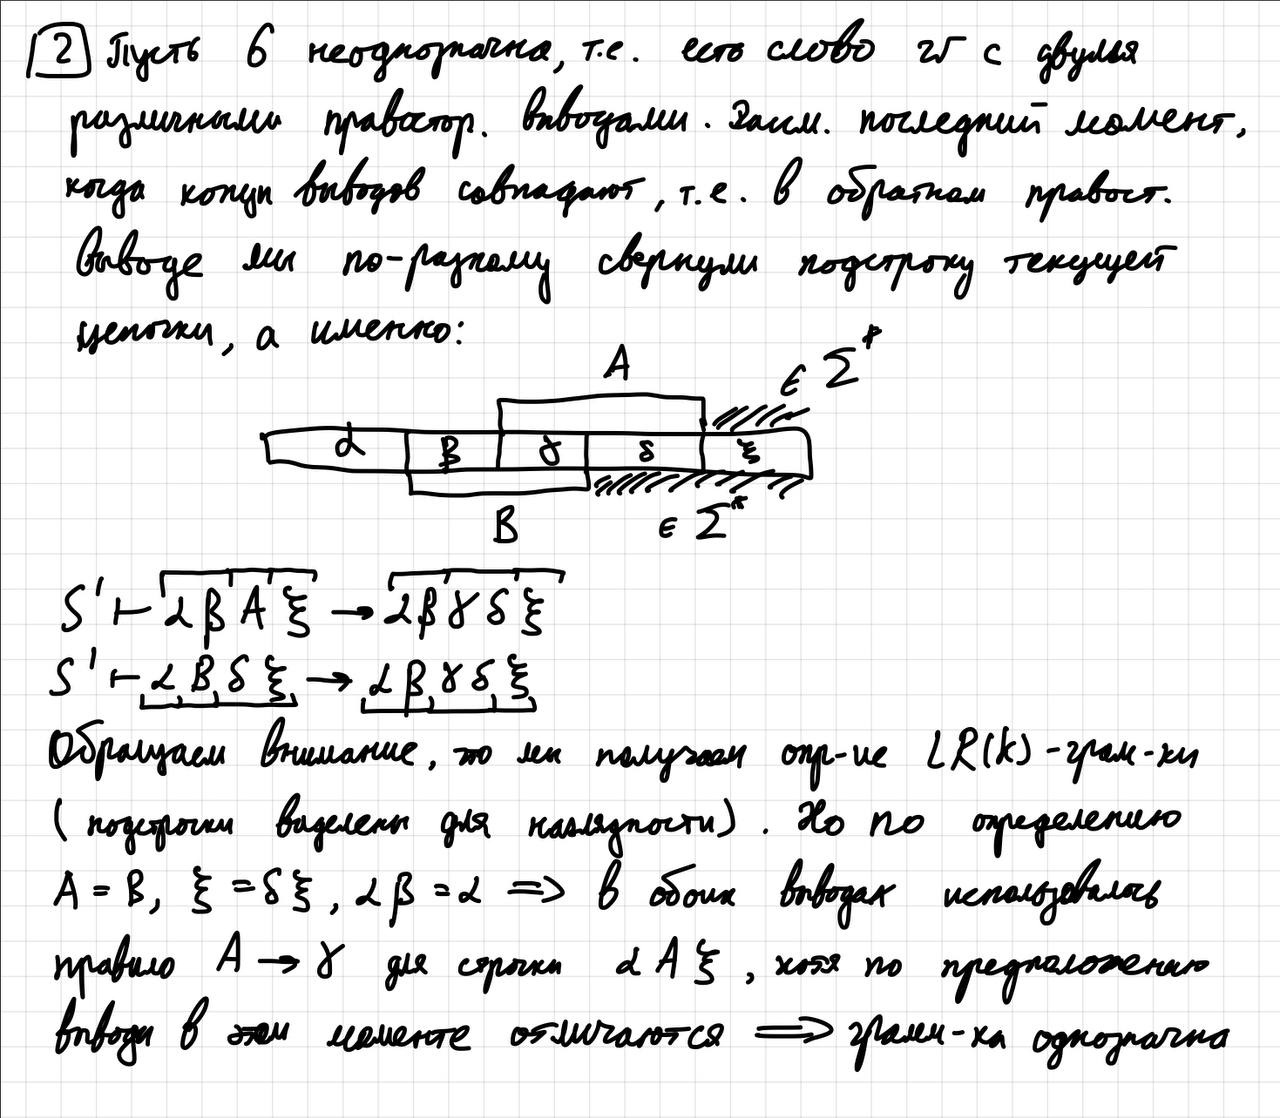 2 Пусть G неоднозначна, т.е. есть слово w с двумя
различными правостор. выводами. Заим. последний момент,
когда концы выводов совпадают, т.е. в обратном правост.
выводе мы по-разному свернули подстроку текущей
цепочки, а именно:
A ∈ Σ*
α β γ δ ξ
B ∈ Σ*
S' ⊢ α β A ξ → α β γ δ ξ
S' ⊢ α B δ ξ → α β γ δ ξ
Обращаем внимание, что мы получаем опр-ие LR(k)-грам-ки
(подстроки выделены для наглядности). Но по определению
A = B, ξ = δ ξ, α β = α ⟹ в обоих выводах использовалось
правило A → γ для строки α A ξ, хотя по предположению
выводы в этом моменте отличаются ⟹ грамм-ка однозначна